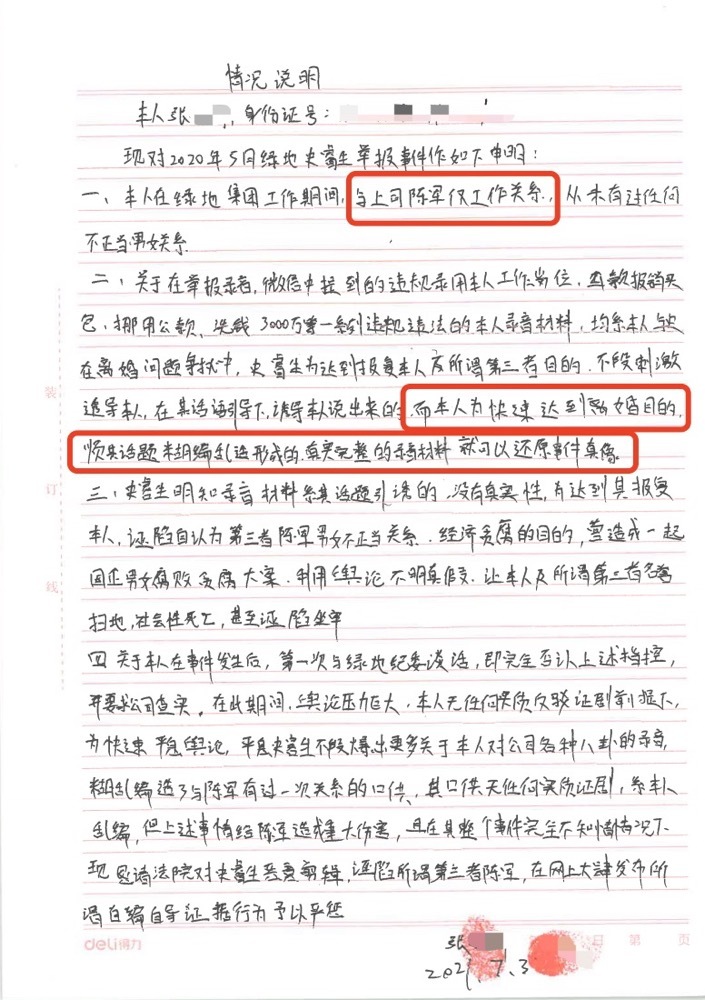 情况说明
本人张 ,身份证号:
现对2020年5月绿地史富生举报事件作如下申明:
一、本人在绿地集团工作期间,与上司陈军仅工作关系,从未有过任何
不正当男女关系
二、关于在举报录音,微信中提到的违规录用本人工作岗位、 款报销买
包、挪用公款、 3000万要一条到违规违法的本人录音材料,均系本人与史
在离婚问题争执中,史富生为达到报复本人及所谓第三者目的,不段刺激
追导本人,在其话语引导下,诱导本人说出来的,而本人为快速达到离婚目的,
顺其话题胡编乱造形成的,真实完整的录音材料就可以还原事件真像。
三、史富生明知录音材料系其话题引诱的,没有真实性,为达到其报复
本人,诬陷自认为第三者陈军男女不正当关系、经济贪腐的目的,营造成一起
国企男女腐败贪腐大案,利用舆论不明真假,让本人及所谓第三者名誉
扫地,社会性死亡,甚至诬陷坐牢
四 关于本人在事件发生后,第一次与绿地纪委谈话,即完全否认上述指控,
并要求公司查实。在此期间,舆论压力巨大,本人无任何实质反驳证剧前提下,
为快速平息舆论,平息史富生不段爆出更多关于本人对公司各种八卦的录音,
糊乱编造了与陈军有过一次关系的口供,其口供无任何实质证剧,系本人
乱编,但上述事情给陈军造成重大伤害,且在其整个事件完全不知情情况下
现恳请法院对史富生恶意剪辑,诬陷所谓第三者陈军,在网上大肆发布所
谓自编自导证据行为予以严惩
装
订
线
deli得力
日 第 页
张
2021.7.3